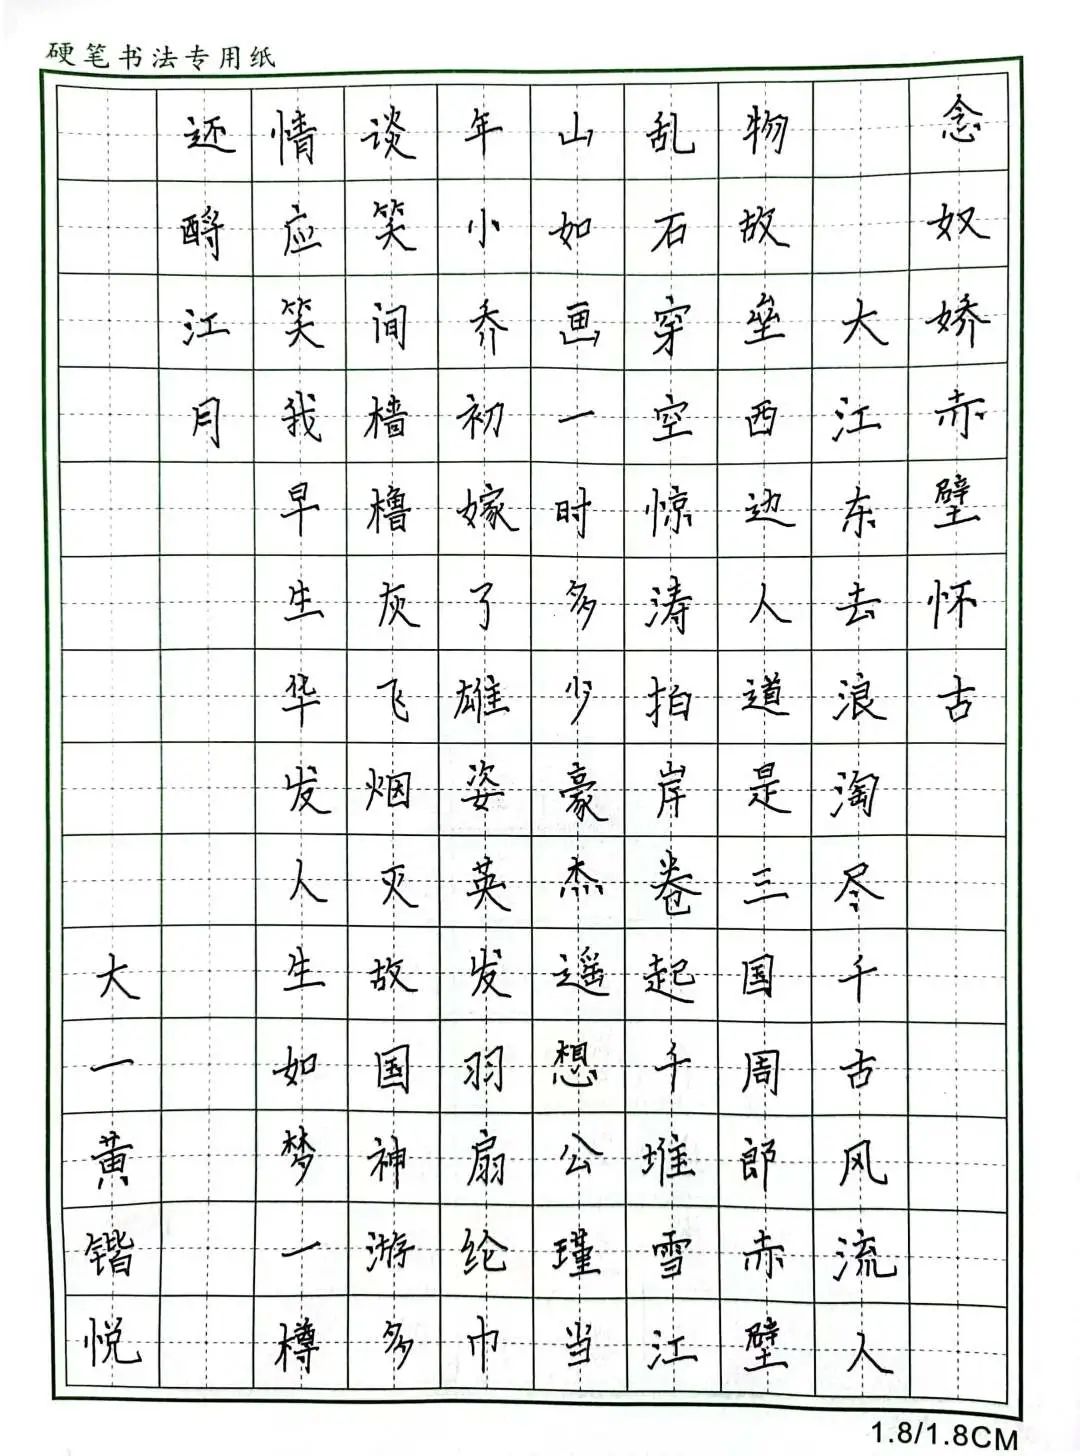 硬笔书法专用纸
念奴娇赤壁怀古
大江东去浪淘尽千古风流人
物故垒西边人道是三国周郎赤壁
乱石穿空惊涛拍岸卷起千堆雪江
山如画一时多少豪杰遥想公瑾当
年小乔初嫁了雄姿英发羽扇纶巾
谈笑间樯橹灰飞烟灭故国神游多
情应笑我早生华发人生如梦一樽
还酹江月
大一黄锴悦
1.8/1.8CM